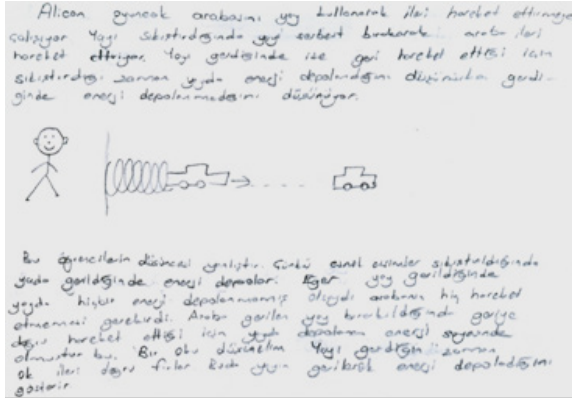 Alican oyuncak arabasını yay kullanarak ileri hareket ettirmeye
çalışıyor. Yayı sıkıştırdığında yayı serbest bırakarak arabo ileri
hareket ettiriyor. Yay gerdiğinde ise geri hareket ettiği için
sıkıştırdığı zaman yayda enerji depolandığını düşünürken gerdi-
ğinde enerji depolanmadığını düşünüyor.
Bu öğrencilerin düşüncesi yanlıştır. Çünkü esnek cisimler sıkıştırıldığında
yada gerildiğinde enerji depolar. Eğer yay gerildiğinde
yayda hiçbir enerji depolanmamış olsaydı arabanın hiç hareket
etmemesi gerekirdi. Araba gerilen yay bırakıldığında geriye
doğru hareket ettiği için yayda depolanan enerji sayesinde
olmuştur bu. Bir oku düşünelim. Yayı gerdiğin zaman
ok ileri doğru fırlar. Buda yayın gerilerek enerji depoladığını
gösterir.